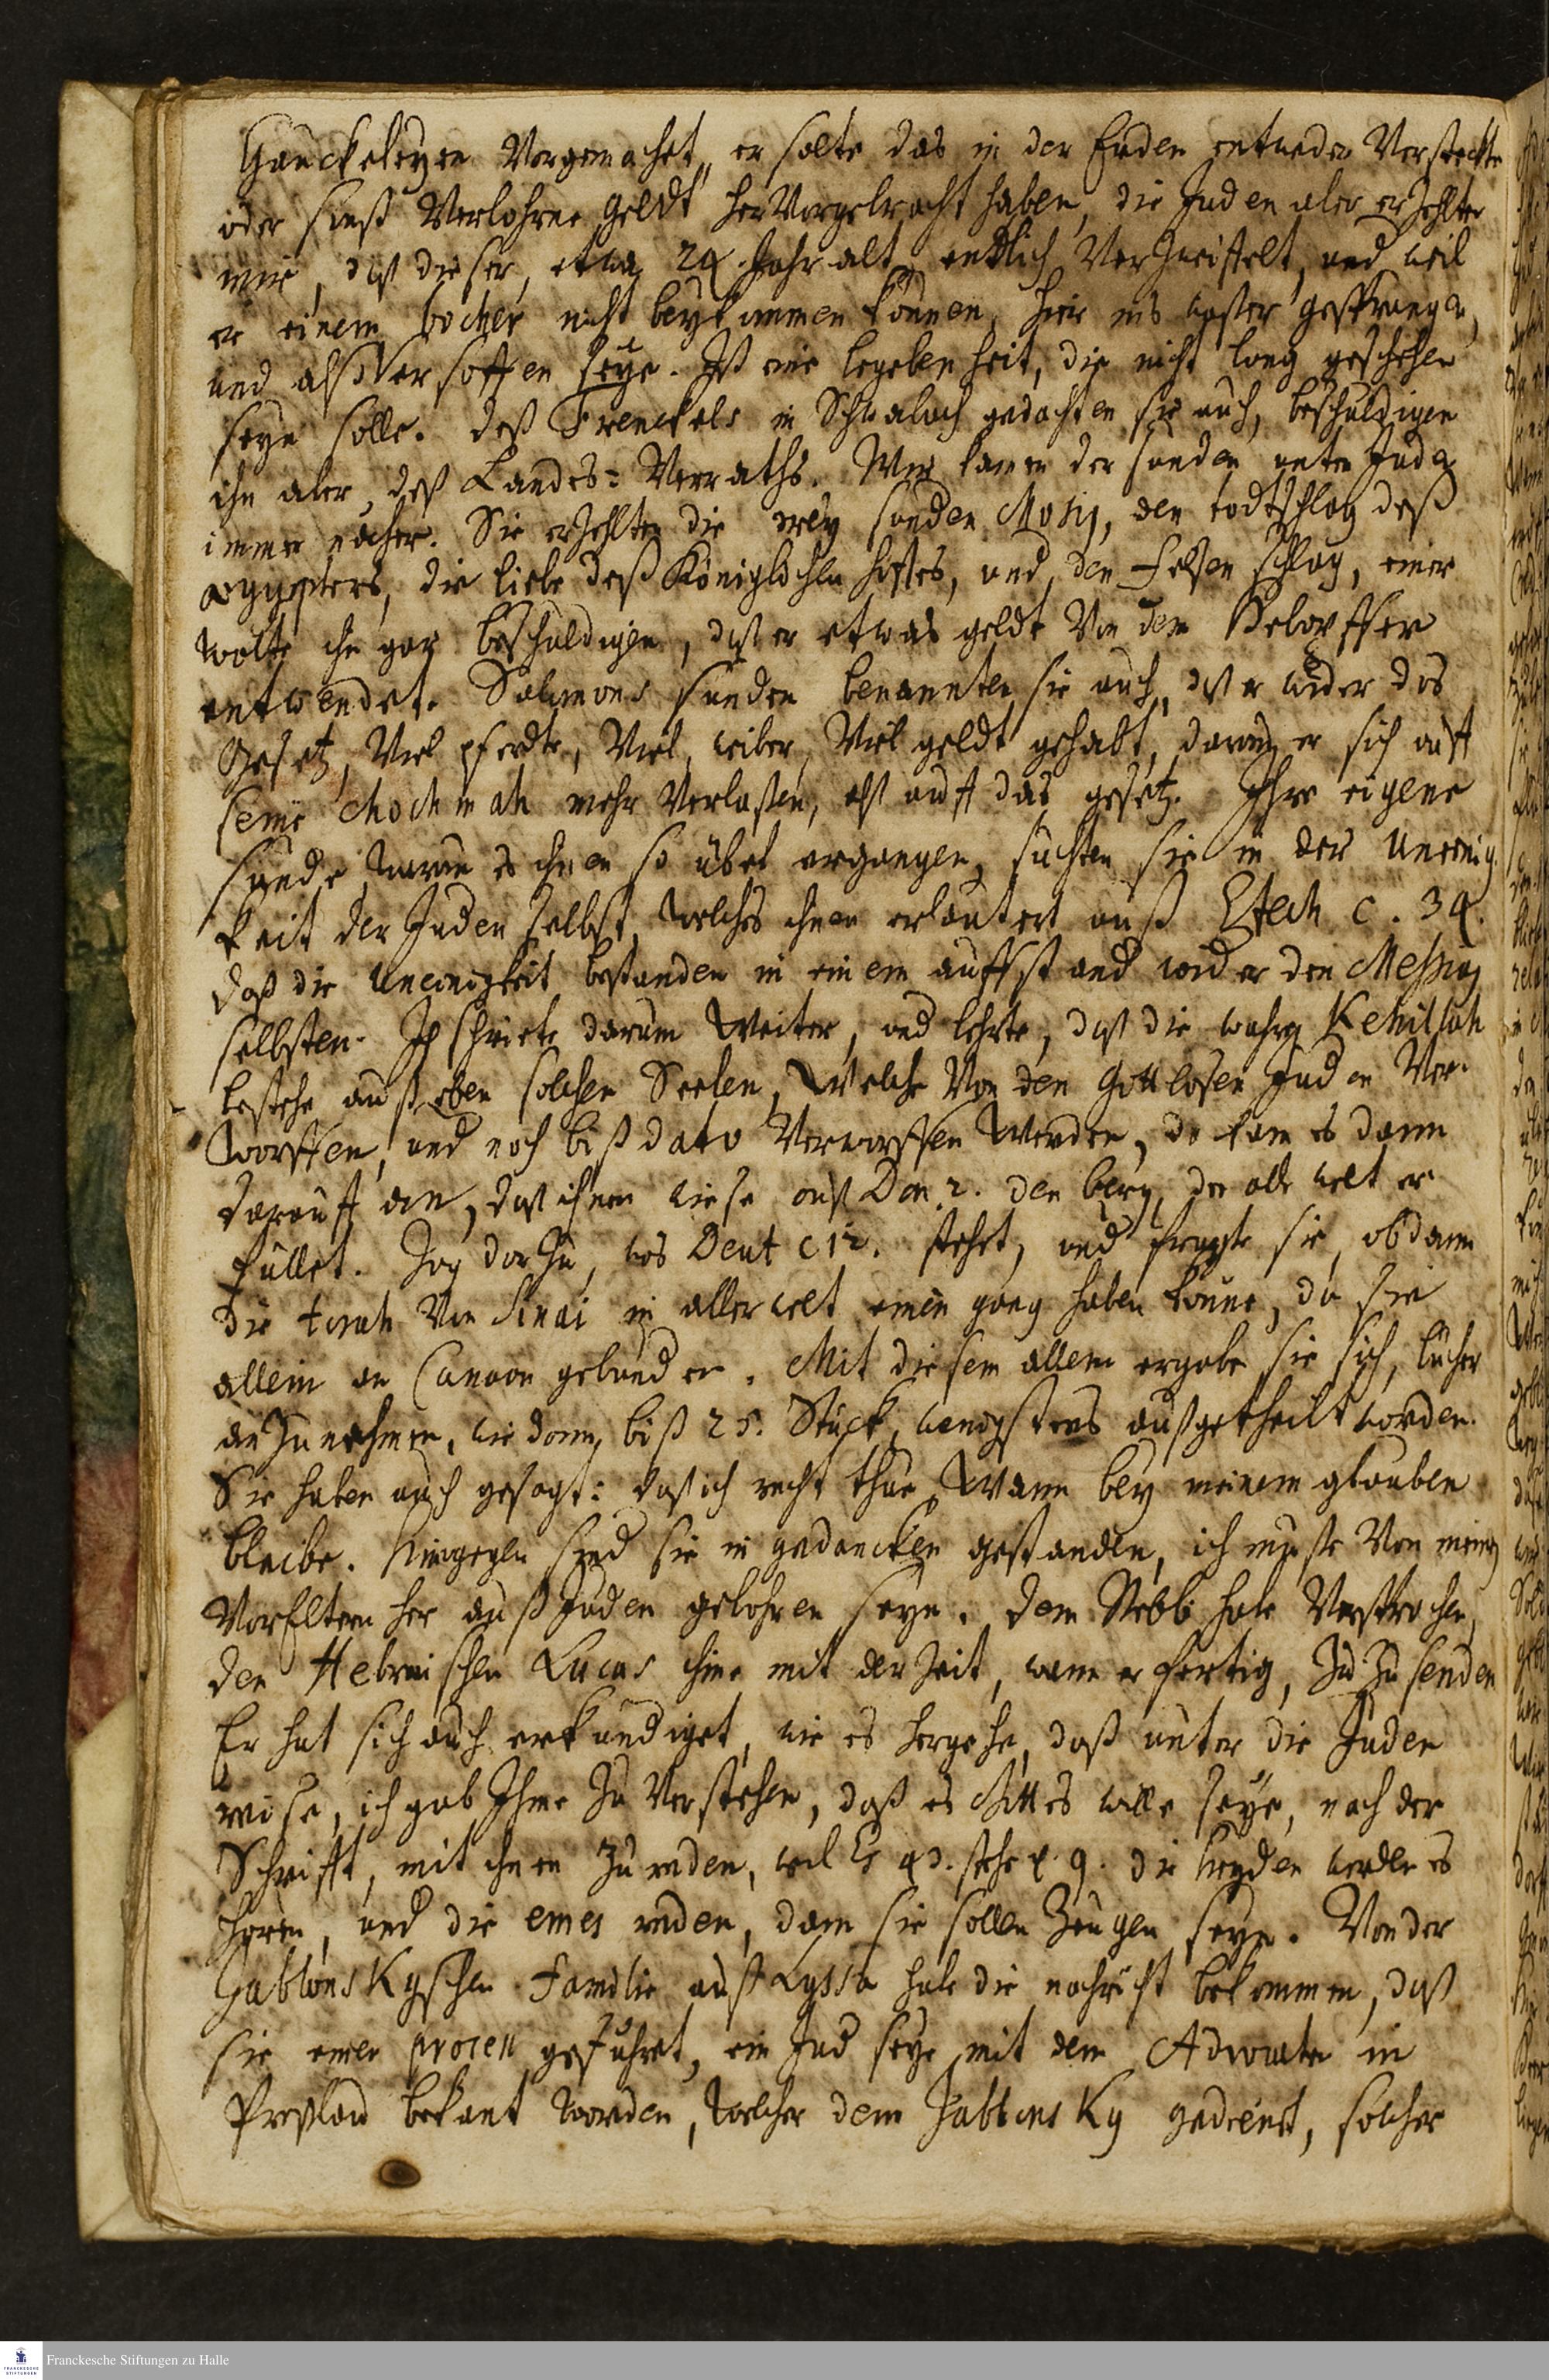 Gauckeleyen Vorgemachet, er solte das in der Erden entweder Versteckte
oder sonst Verlohrne geldt herVorgebracht haben, die Juden aber erzehlten
mir, daß dieser, etwa 24 Jahr alt, endtlich Verzweifelt, und weil
er einem bocher nicht beykommen können, hier ins waßer gesprungen,
und also Versoffen seye. Ist eine begebenheit, die nicht lang geschehen
seyn solle. Deß Frenckels in Schwabach gedachten sie auch, beschuldigen
ihn aber, deß Landes-Verraths. Wir kamen der sünden unter Juden
immer näher. Sie erzehlten die drey sünden Mosis, den todtschlag deß
ægypters, die liebe deß Königlichen hofes, und den Felsen schlag, einer
wolte ihn gar beschuldigen, daß er etwas geldt Von dem
entwendet. Salomons sünden benannten sie auch, daß er wider das
Gesetz, Viel pferdte, Viel weiber, Viel geldt gehabt, darauf er sich auff
seine chochmah mehr Verlaßen, alß auff das gesetz. Ihre eigene
sünde, warum es ihnen so übel ergangen, suchten sie in der Uneinig-
keit der Juden selbst, welches ihnen erläutert auß Ezech c. 34.
daß die Uneinigkeit bestanden in einem auffstand wider den Messias
selbsten. Ich schritte darum weiter, und lehrte, daß die wahre Kehillah
bestehe auß eben solchen Seelen, welche Von den Gottlosen Juden Ver-
worffen, und noch biß dato Verworffen werden, da kam es dann
darauff an, daß ihnen wiese auß Dan. 2. den berg, der alle welt er-
füllet. Zog darzu, was Deut c 12. stehet, und fragte sie, ob dann
die torah Von Sinai in aller welt einen gang haben könne, da sie
allein an Canaan gebunden. Mit diesem allem ergabe sie sich, bücher
anzunehmen, wie dann biß 25. Stück wenigstens außgetheilt worden.
Sie haben auch gesagt: daß ich recht thue, wann bey meinem glauben
bleibe. hingegen sind sie in gedancken gestanden, ich müste Von meinen
VorEltern her auß Juden gebohren seyn. Dem Rebbi habe Versprochen,
den Hebræischen Lucas ihme mit der Zeit, wann er fertig, zu zu senden
Er hat sich auch erkundiget, wie es hergehe, daß unter die Juden
reise, ich gab Ihme zu Verstehen, daß es Gottes wille seye, nach der
Schrifft, mit ihnen zu reden, weil Es 43. stehe v. 9. die heyden werden es
hören, und die emes reden, dann sie sollen Zeugen seyn. Von der
Jablonskyschen Familie auß Lyssa habe die nachricht bekommen, daß
sie einen process geführet, ein Jud seye mit dem Advocaten in
Breßlau bekant worden, welcher dem Jablonsky gedient, solcher
Franckesche Stiftungen zu Halle